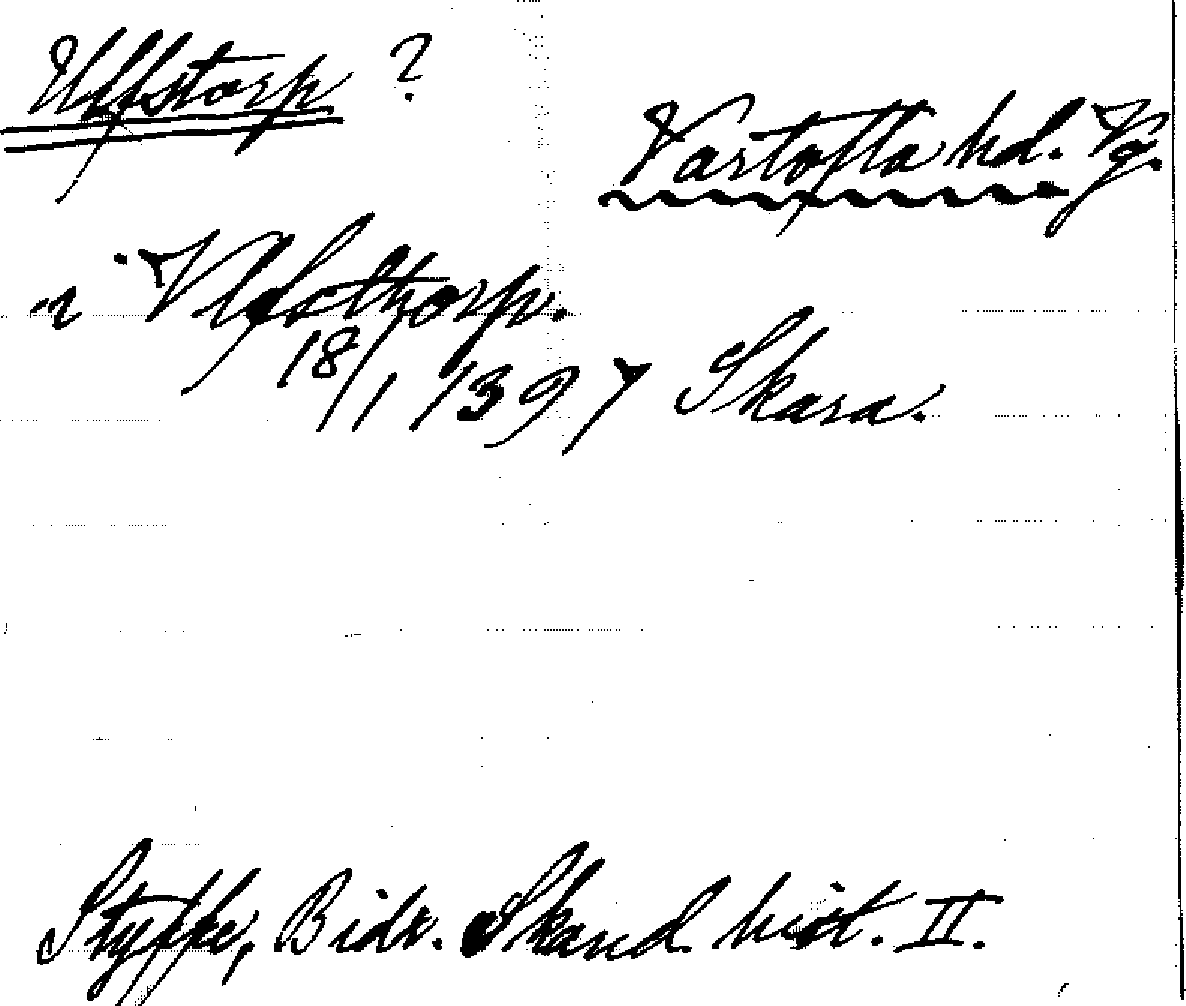 Ulfstorp ?
Vartofta hd. Vg.
i Vlfsthorp.
18/1 1397 Skara.
Styffe, Bidr. Skand. hist. II.